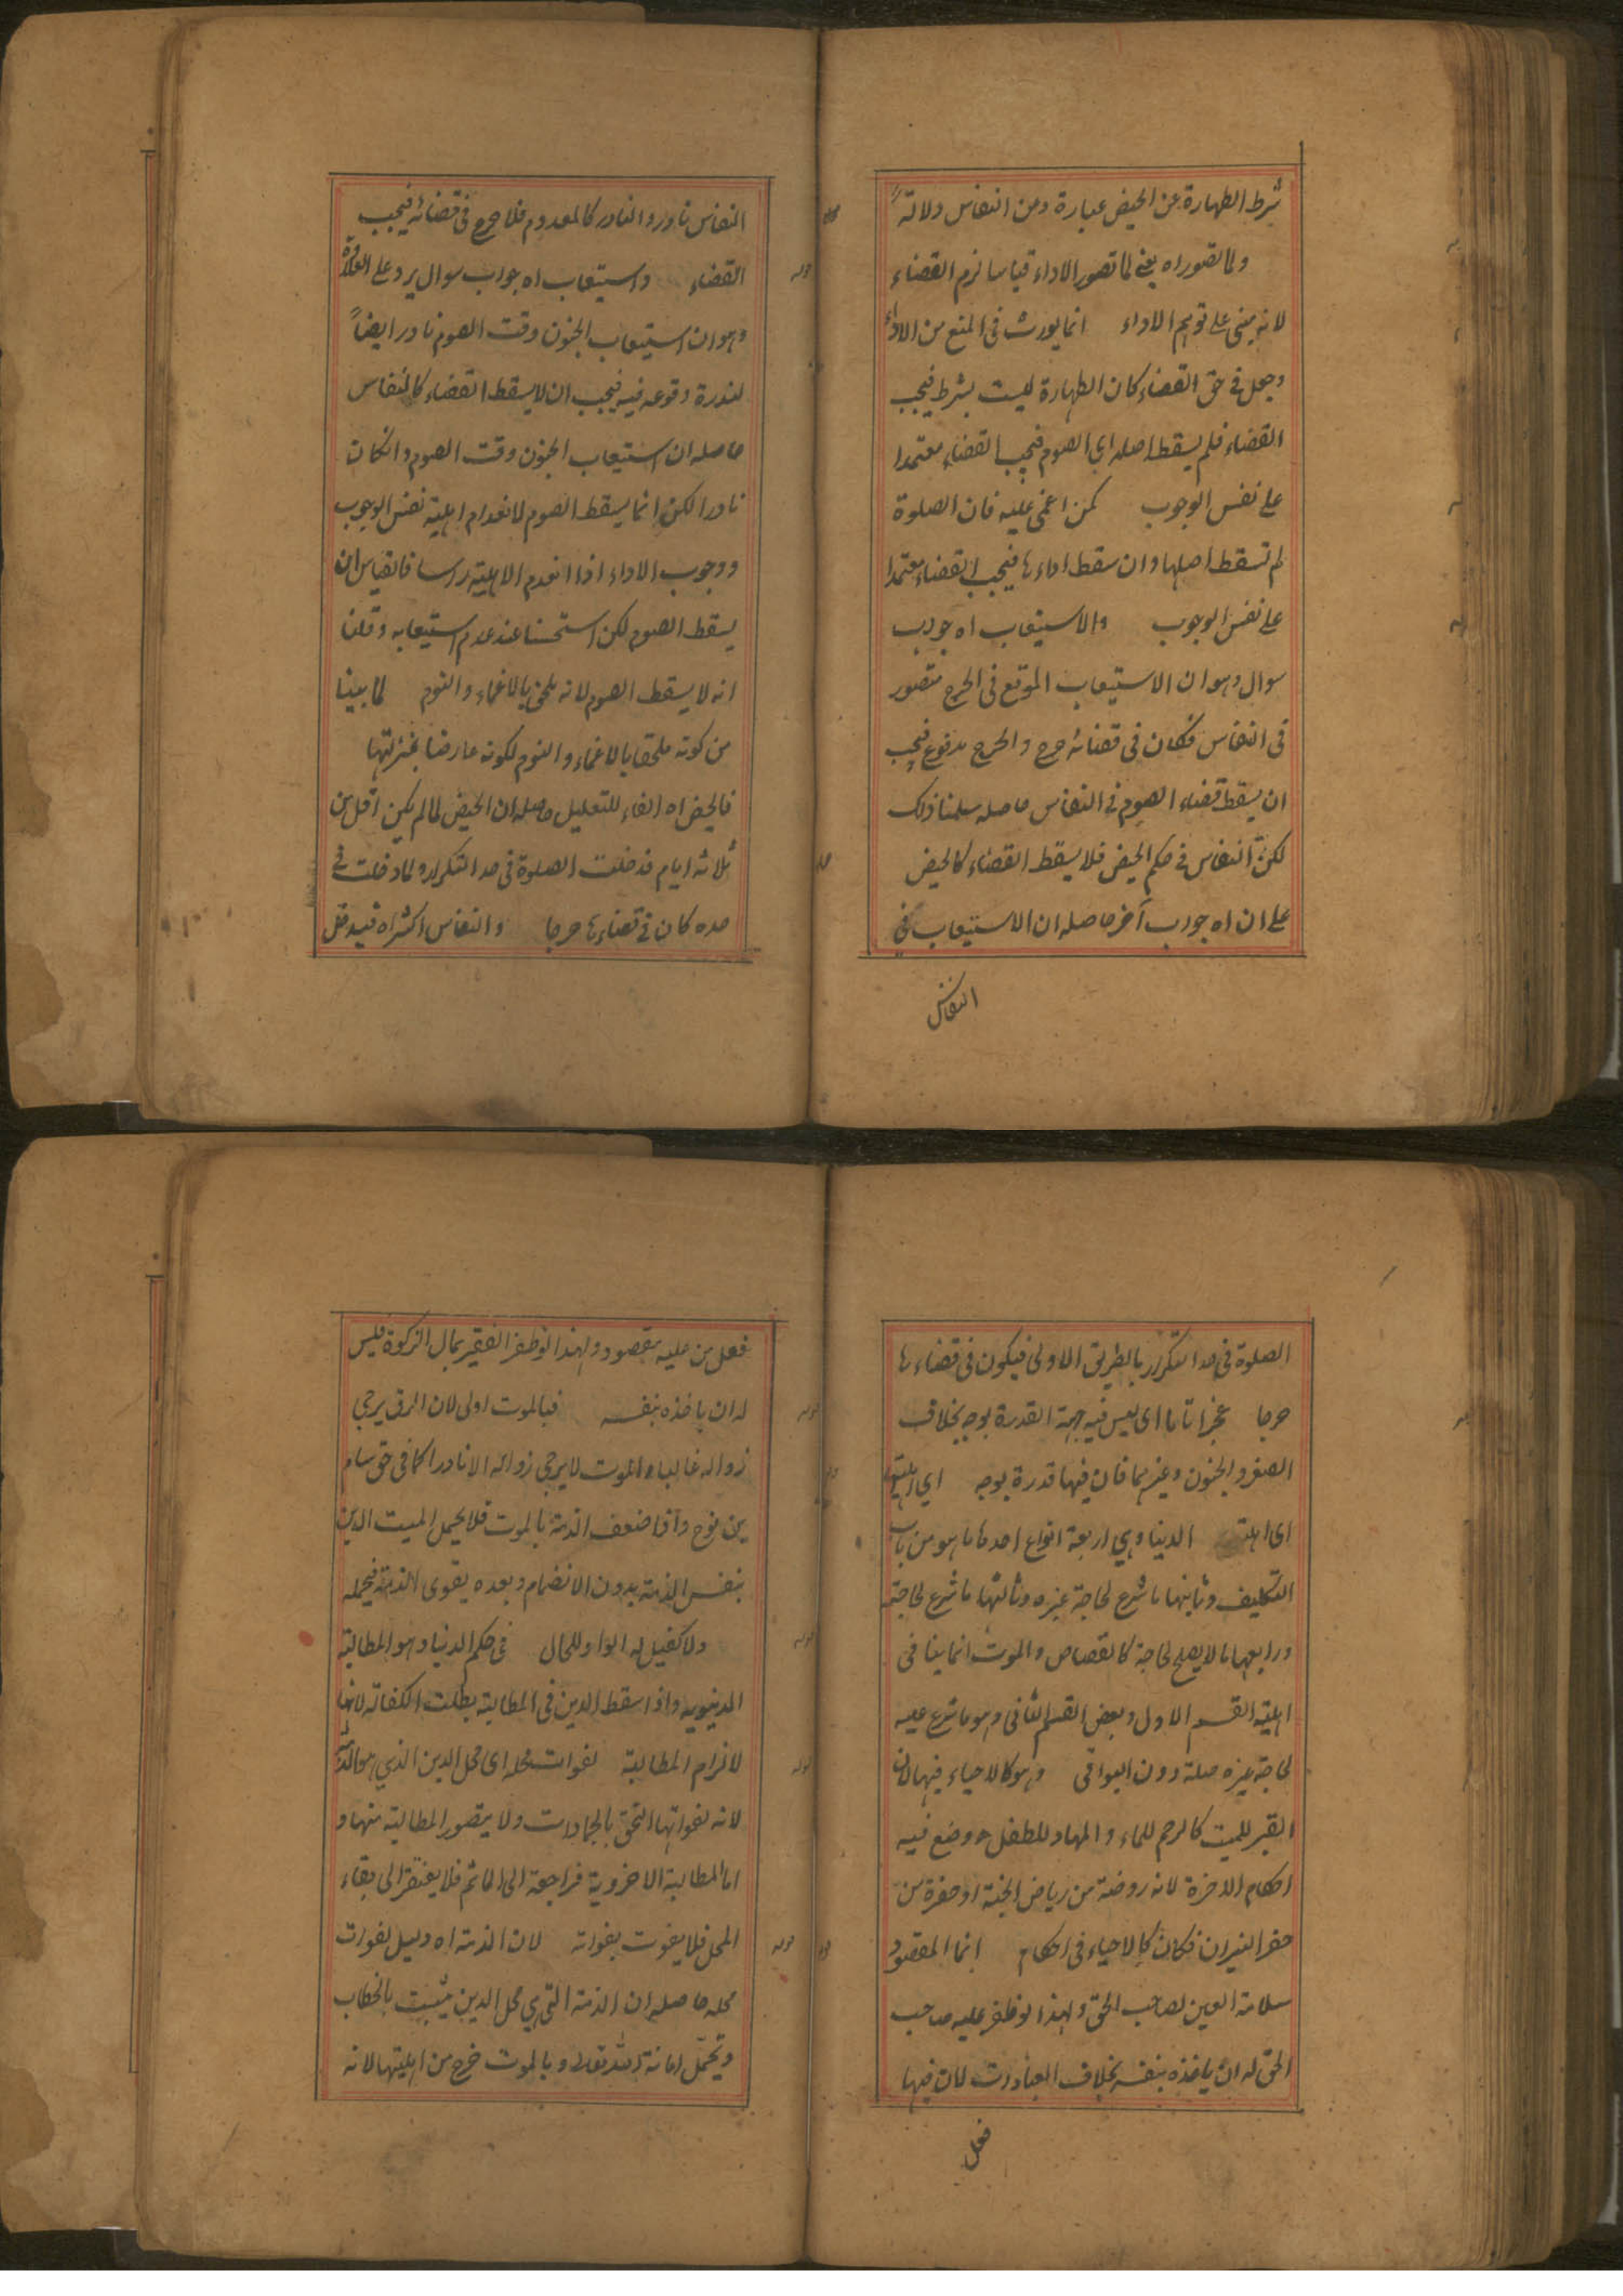 شرط الطهارة عن الحيض عبارة ومن النفاس دلالةً
ولما تصور اه يعنى لما تصور الاداء قياسا لزم القضاء
لانه مبنى على توهم الاداء انما يورث فى المنع من الاداء
وجعل فى حق القضاء كان الطهارة ليست بشرط فيجب
القضاء فلم يسقط اصله اى الصوم فيجب القضاء معتمدا
على نفس الوجوب كمن اغمى عليه فان الصلوة
لم تسقط اصلها وان سقط اداءها فيجب القضاء معتمدا
على نفس الوجوب والاستيعاب اه جواب
سوال وهو ان الاستيعاب الموقع فى الحرج متصور
فى النفاس فكان فى قضائه حرج والحرج مدفوع فيجب
ان يسقط قضاء الصوم فى النفاس حاصله سلمنا ذلك
لكن النفاس فى حكم الحيض فلا يسقط القضاء كالحيض
على ان اه جواب آخر حاصله ان الاستيعاب فى
النفاس
النفاس نادر والنادر كالمعدوم فلا حرج فى قضائه فيجب
القضاء واستيعاب اه جواب سوال يرد على العلاوة
وهو ان استيعاب الجنون وقت الصوم نادر ايضاً
لندرة وقوعه فيه فيجب ان لا يسقط القضاء كالنفاس
حاصله ان استيعاب الجنون وقت الصوم وانكان
نادرا لكن انما يسقط الصوم لانعدام اهلية نفس الوجوب
ووجوب الاداء اذا انعدم الاهلية راسا فالقياس ان
يسقط الصوم لكن استحسنا عند عدم استيعابه وقلنا
انه لا يسقط الصوم لانه ملحق بالاغماء والنوم لما بينا
من كونه ملحقا بالاغماء والنوم لكونه عارضا بمنزلتها
فالحيض اه الفاء للتعليل حاصله ان الحيض لما لم يكن اقل من
ثلاثة ايام فدخلت الصلوة فى حد التكرار ولما دخلت فى
حده كان فى قضاءها حرجا والنفاس اكثر اه فيدخل
الصلوة فى حد التكرار بالطريق الاولى فيكون فى قضاءها
حرجا عجز اتاما اى ليس فيه جهة القدرة بوجه بخلاف
الصغر والجنون وغيرهما فان فيها قدرة بوجه اى اهلية
اى اهلية الدينا وهى اربعة انواع احدها ما هو من باب
التكليف وثانيها ما شرع لحاجة غيره وثالثها ما شرع لحاجته
ورابعها ما لا يصلح لحاجة كالقصاص والموت انما ينافى
اهلية القسم الاول وبعض القسم الثانى وهو ما شرع عليه
لحاجة غيره صلة دون البواقى وهو كالاحياء فيها لان
القبر للميت كالرحم للماء والمهاد للطفل ووضع فيه
احكام الاخرة لانه روضة من رياض الجنة او حفرة من
حفر النيران فكان كالاحياء فى احكام انما المقصود
سلامة العين لصاحب الحق ولهذا لو ظفر عليه صاحب
الحق له ان ياخذه بنفسه بخلاف العبادات لان فيها
فعل
فعل من عليه مقصود ولهذا لو ظفر الفقير بمال الزكوة فليس
له ان ياخذه بنفسه فبالموت اولى لان الرق يرجى
زواله غالبا والموت لا يرجى زواله الا نادرا كما فى حق سام
بن نوح واذا ضعف الذمة بالموت فلا يحمل الميت الدين
بنفس الذمة بدون الانضمام وبعده يقوى الذمة فيحمله
ولا كفيل له الواو للحال فى حكم الدنيا وهو المطالبة
الدنيوية واذا سقط الدين فى المطالبة بطلت الكفالة لانها
لالزام المطالبة لفوات محله اى محل الدين الذى هو الذمة
لانه لفواتها التحق بالجمادات ولا يتصور المطالبة منها و
اما المطالبة الاخروية فراجعة الى الماثم فلا يفتقر الى بقاء
المحل فلا يفوت بفواته لان الذمة اه دليل لفوات
محله حاصله ان الذمة التى هى محل الدين يثبت بالخطاب
وتحمل امانة الله تعالى وبالموت خرج من اهليتها لانه